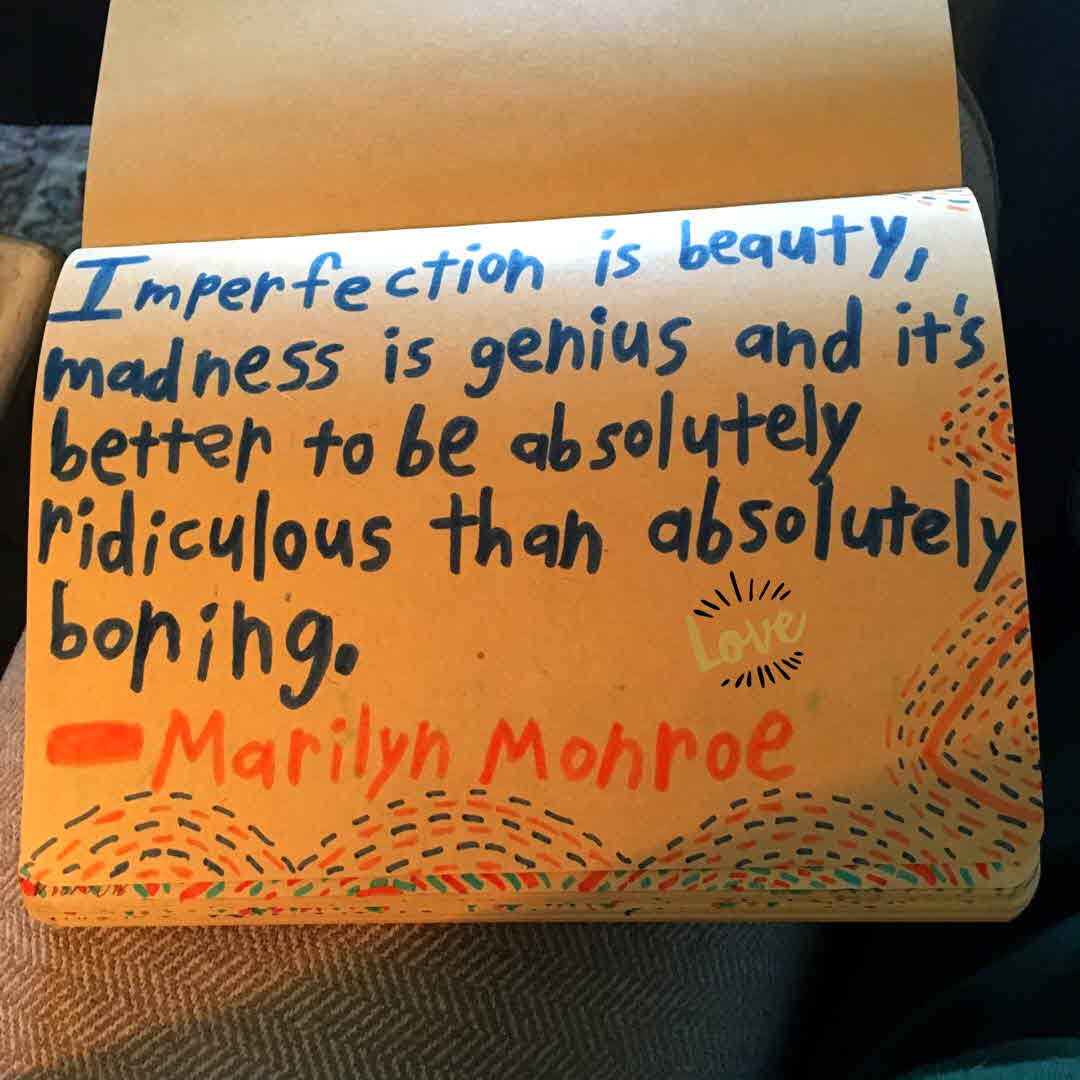 Imperfection is beauty,
madness is genius and it's
better to be absolutely
ridiculous than absolutely
boring.
Love
- Marilyn Monroe